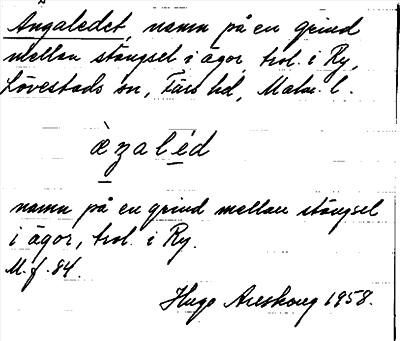 Ängaledet, namn på en grind
mellan stängsel i ägor, trol. i Ry,
Lövestads sn, Färs hd, Malm. l.
æ̀zaléd
namn på en grind mellan stängsel
i ägor, trol. i Ry.
M. f. 84.
Hugo Areskoug 1958.